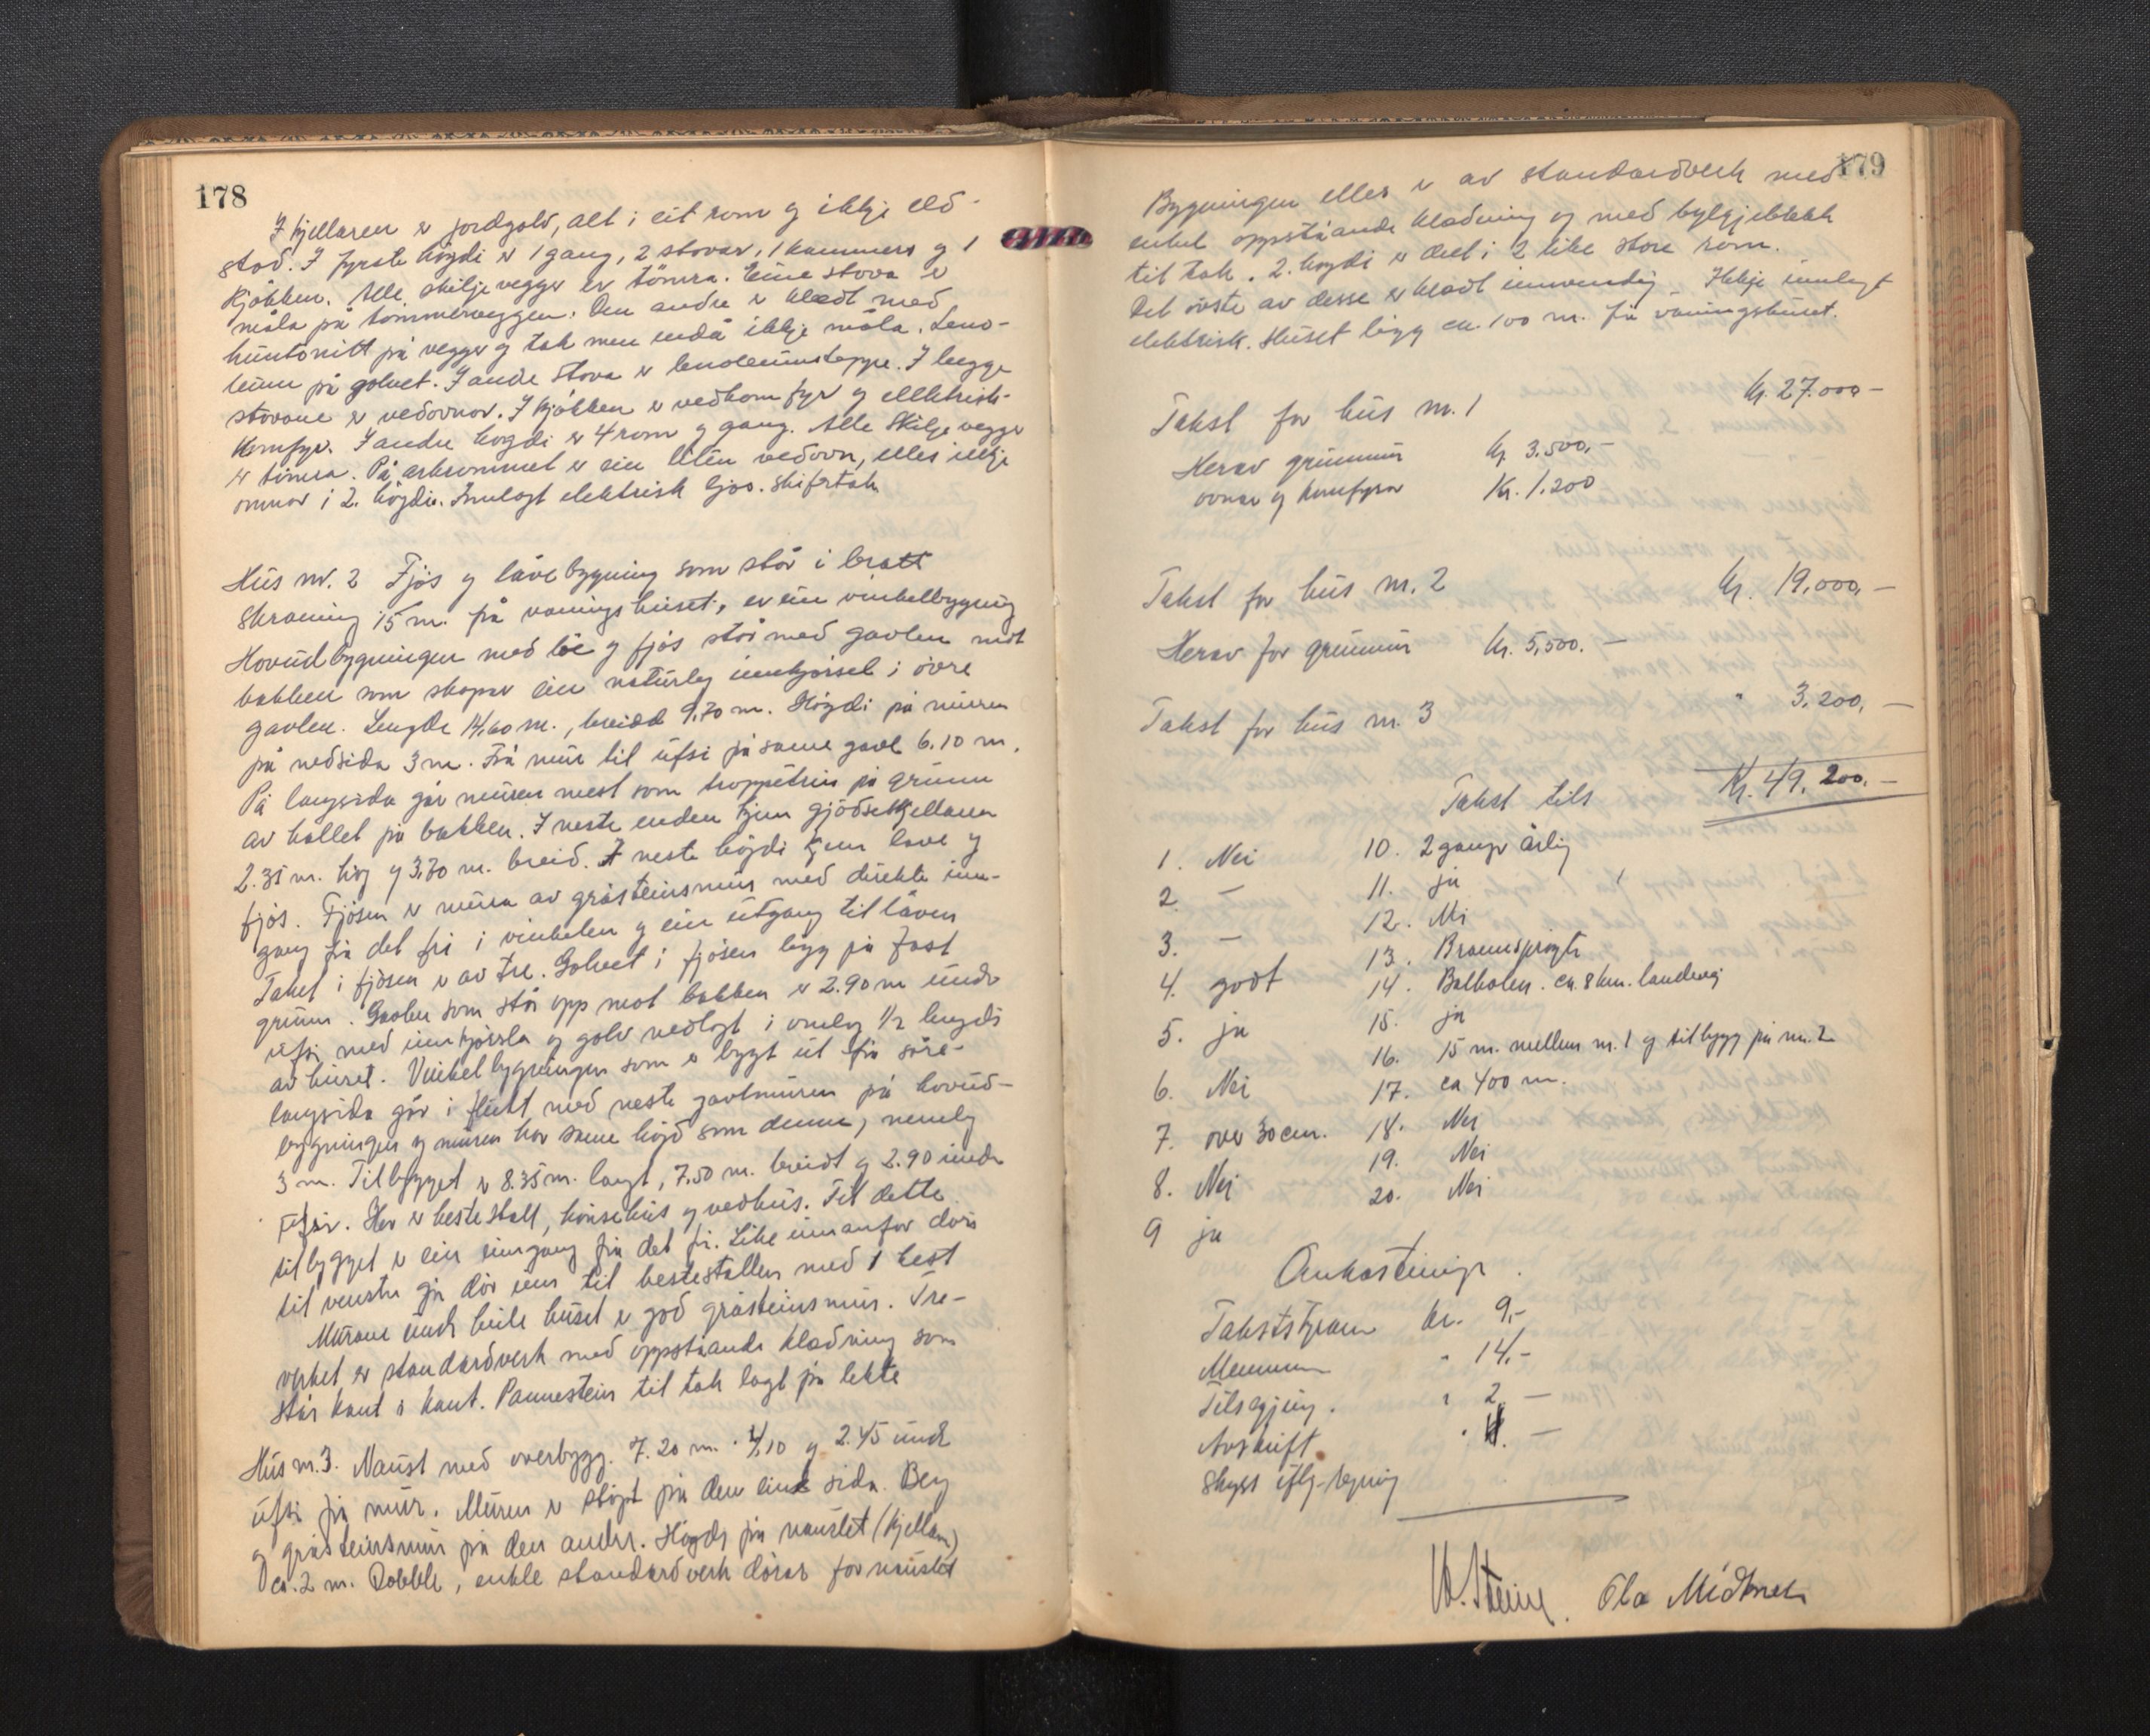 178
I kjellaren er jordgolv, alt i eit rom og ikkje eld-
stad. I fyrste högdi er 1 gang, 2 stovar, 1 kammers og 1
kjökken. Alle skiljevegger er tömra. Eine stova er
måla på tömmerveggen. Den andre er klædt med
huntonitt på vegger og tak men endå ikkje måla. Leno-
leum på golvet. I andre stova er lenoleumsteppe. I begge
stovone er vedovnar. I kjökken er vedkomfyr og elektrisk-
komfyr. I andre högdi er 4 rom og gang. Alle skiljevegger
er tömra. På arkrommet er ein liten vedovn, elles ikkje
omnar i 2. högdi. Innlagt elektrisk ljos. Skifertak
Hus nr. 2 Fjös og låvebygning som står i bratt
skraning 15 m. frå våningshuset, er ein vinkelbygning
Hovudbygningen med löe og fjös står med gavlen mot
bakken som skapar ein naturleg innkjörsel i övre
gavlen. Lengde 14,60 m., breidd 9,70 m. Högdi på muren
på nedsida 3 m. Frå mur til ufsi på same gavl 6.10 m.
På langsida går muren mest som troppetrin på grunn
av hallet på bakken. I neste enden kjem gjödselkjellaren
2.35 m. hög og 3,80 m. breid. I neste högdi kjem lave og
fjös. Fjösen er mura av gråsteinsmur med direkte inn-
gang frå det fri i vinkelen og ein utgang til låven
Taket i fjösen er av tre. Golvet i fjösen ligg på fast
grunn. Gavlen som står opp mot bakken er 2.90 m under
ufsi med innkjörsla og golv nedlagt i omlag 1/2 lengdi
av huset. Vinkelbygningen som er bygt ut frå söre-
langsida går i flukt med neste gavlmuren på hovud-
bygningen og muren har same högd som denne, nemleg
3 m. Tilbygget er 8.35 m. langt, 7,50 m. breidt og 2.90 under
ufsi. Her er hestestall, hönsehus og vedhus. Til dette
tilbygget er ein inngang frå det fri. Like innanfor döri
til venstre går dör inn til hestestallen med 1 hest
Murane under heile huset er god gråsteinsmur. Tre-
verket er standardverk med oppståande kledning som
står kant i kant. Pannestein til tak lagt på lekte
Hus nr. 3. Naust med overbygg. 7.20 m. · 4,10 og 2.45 under
ufsi frå mur. Muren er stöpt på den eine sida. Berg
og gråsteinsmur på den andre. Högdi på naustet (kjellaren)
ca. 2 m. Dobble, enkle standardverk dörar for naustet
179
Bygningen elles er av standardverk med
enkel oppståande kledning og med bylgjeblekk
til tak. 2. högdi er delt i 2 like store rom.
Det övste av desse er kledt innvendig. Ikkje innlagt
elektrisk. Huset ligg ca. 100 m. frå våningshuset.
Takst for hus nr. 1 Kr. 27.000 –
Herav grunnmur Kr. 3.500,-
ovnar og komfyrar Kr. 1.200
Takst for hus nr. 2 Kr. 19.000, –
Herav for grunnmur Kr. 5,500. –
Takst for hus nr. 3 " 3,200, –
Takst tils Kr. 49.200. –
1. Nei 10. 2 gangr årlig
2. – 11. ja
3. – 12. Nei
4. godt 13. Brannspröyte
5. ja 14. Balholm. ca. 8 km. landveg
6. Nei 15. ja
7. over 30 cm. 16. 15 m. mellom nr. 1 og tilbygg på nr. 2
8. Nei 17. ca 400 m.
9 ja 18. Nei
19. Nei
20. Nei
Omkostningr.
Takststyraren Kr. 9,-
Mennene " 14,-
Tilsegjing. " 2, –
Avskrift " 4. –
Skyss iflg. regning
Ola Midtnes